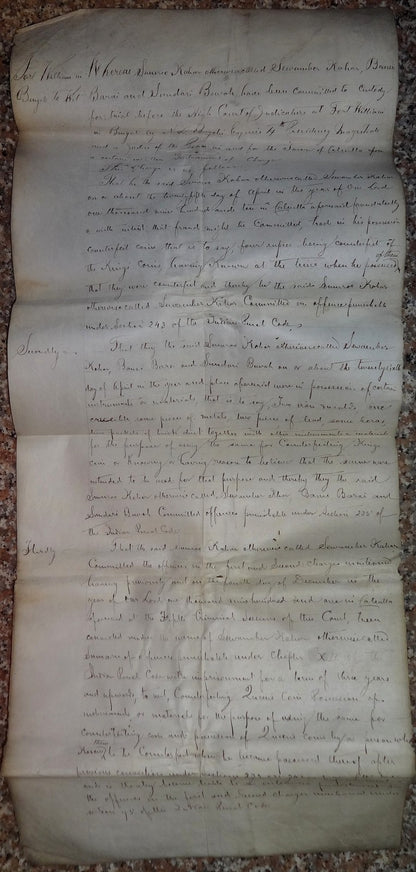 Fort William in Whereas Sumroo Kahar otherwise called Sewumber Kahar, Banee
Bengal to Wit Barai and Sundari Bewah have been committed to custody
for trial before the High Court of Judicature at Fort William
in Bengal by 4th Presidency Magistrate
and in and for the Town of Calcutta upon
a certain Charge
That he the said Sumroo Kahar otherwise called Sewumber Kahar
on or about the twentyfifth day of April in the year of Our Lord
one thousand nine hundred and ten in Calcutta aforesaid fraudulently
with intent that fraud might be Committed, had in his possession
counterfeit coins that is to say, four rupees being counterfeit of
the Kings Coins having Known at the time when he possessed of them
that they were counterfeit and thereby he the said Sumroo Kahar
otherwise called Sewumber Kahar Committed an offence punishable
under Section 243 of the Indian Penal Code
Secondly That they the said Sumroo Kahar otherwise called Sewumber
Kahar, Banee Barai and Sundari Bewah on or about the twentyfifth
day of April in the year and place aforesaid were in possession of certain
instruments or materials, that is to say, Two iron one
some pieces of metals, two pieces of lead, some
together with other instruments or materials
for the purpose of using the same for Counterfeiting Kings
coin or Knowing or having reason to believe that the same were
intended to be used for that purpose and thereby they the said
Sumroo Kahar otherwise called Sewumber Kahar Banee Barai and
Sundari Bewah Committed offences punishable under Section 235 of
the Indian Penal Code
Thirdly That the said Sumroo Kahar otherwise called Sewumber Kahar
Committed the offences in the first and Second Charges mentioned
having previously on the fourth day of December in the
year of Our Lord one thousand nine hundred and one in Calcutta
aforesaid at the Fifth Criminal Sessions of this Court, been
convicted under the name of Sewumber Kahar otherwise called
Sumroo of offences punishable under Chapter XII of the
Indian Penal Code with imprisonment for a term of three years
and upwards, to wit, Counterfeiting Queens Coin Possession of
instruments or materials for the purpose of using the same for
counterfeiting coin and possession of Queens Coin by a person who
Knew them to be Counterfeit when he became possessed thereof after
previous conviction under
and is thereby
the offences in the first and Second Charges mentioned under
Section 75 of the Indian Penal Code